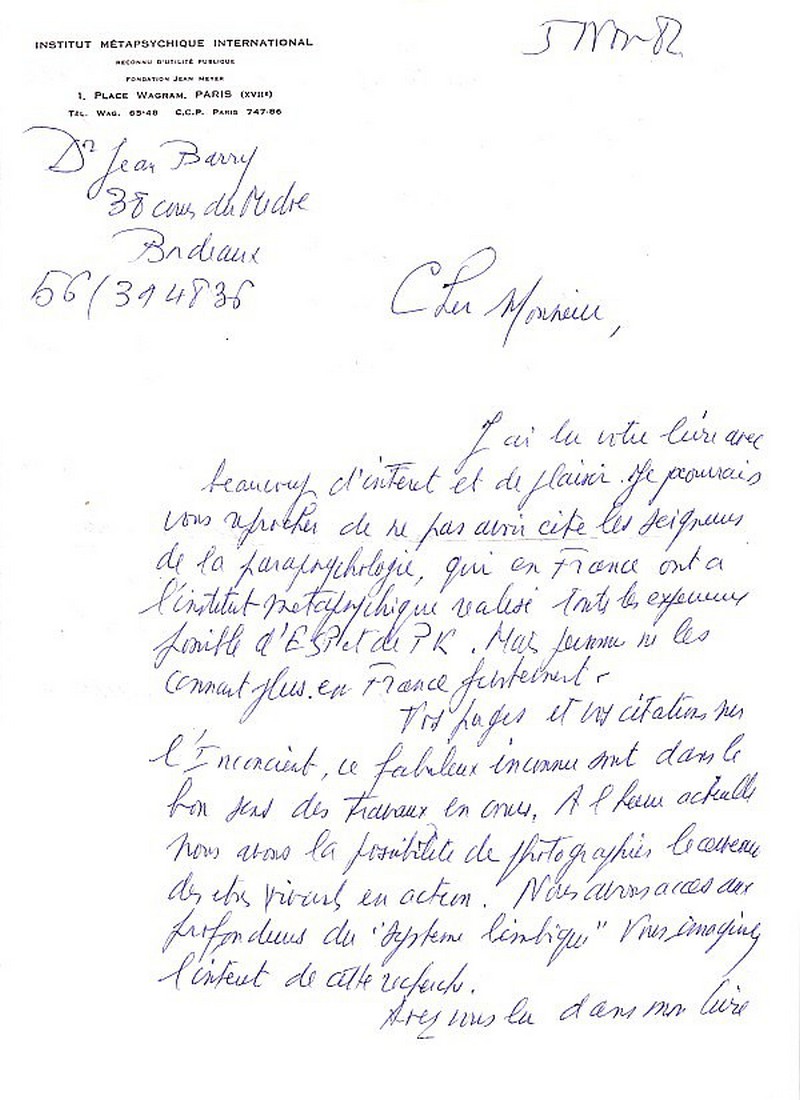 INSTITUT MÉTAPSYCHIQUE INTERNATIONAL
RECONNU D'UTILITÉ PUBLIQUE
FONDATION JEAN MEYER
1, PLACE WAGRAM, PARIS (XVIIe)
TÉL. WAG. 65-48 C.C.P. PARIS 747-86
5 Nov 82
Dr Jean Barry
38 cours du Médoc
Bordeaux
56/394836
Cher Monsieur,
J'ai lu votre livre avec
beaucoup d'intéret et de plaisir. Je pourrais
vous reprocher de ne pas avoir cité les seigneurs
de la parapsychologie, qui en France ont a
l'institut métapsychique realisé toutes les expériences
possible d'ESP et de PK. Mais personne ne les
connait plus en France
Vos pages et vos citations sur
l'Inconcient, ce fabuleux inconnu sont dans le
bon sens des travaux en cours. A l'heure actuelle
nous avons la possibilité de photographier le cerveau
des etres vivants en action. Nous avons acces aux
profondeurs du "systeme limbique" Vous imaginez
l'intéret de cette recherche.
Avez vous lu dans mon livre